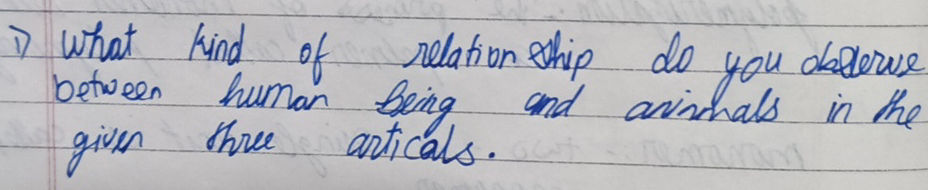 1) What kind of relationship do you observe
between human being and animals in the
given three articals.